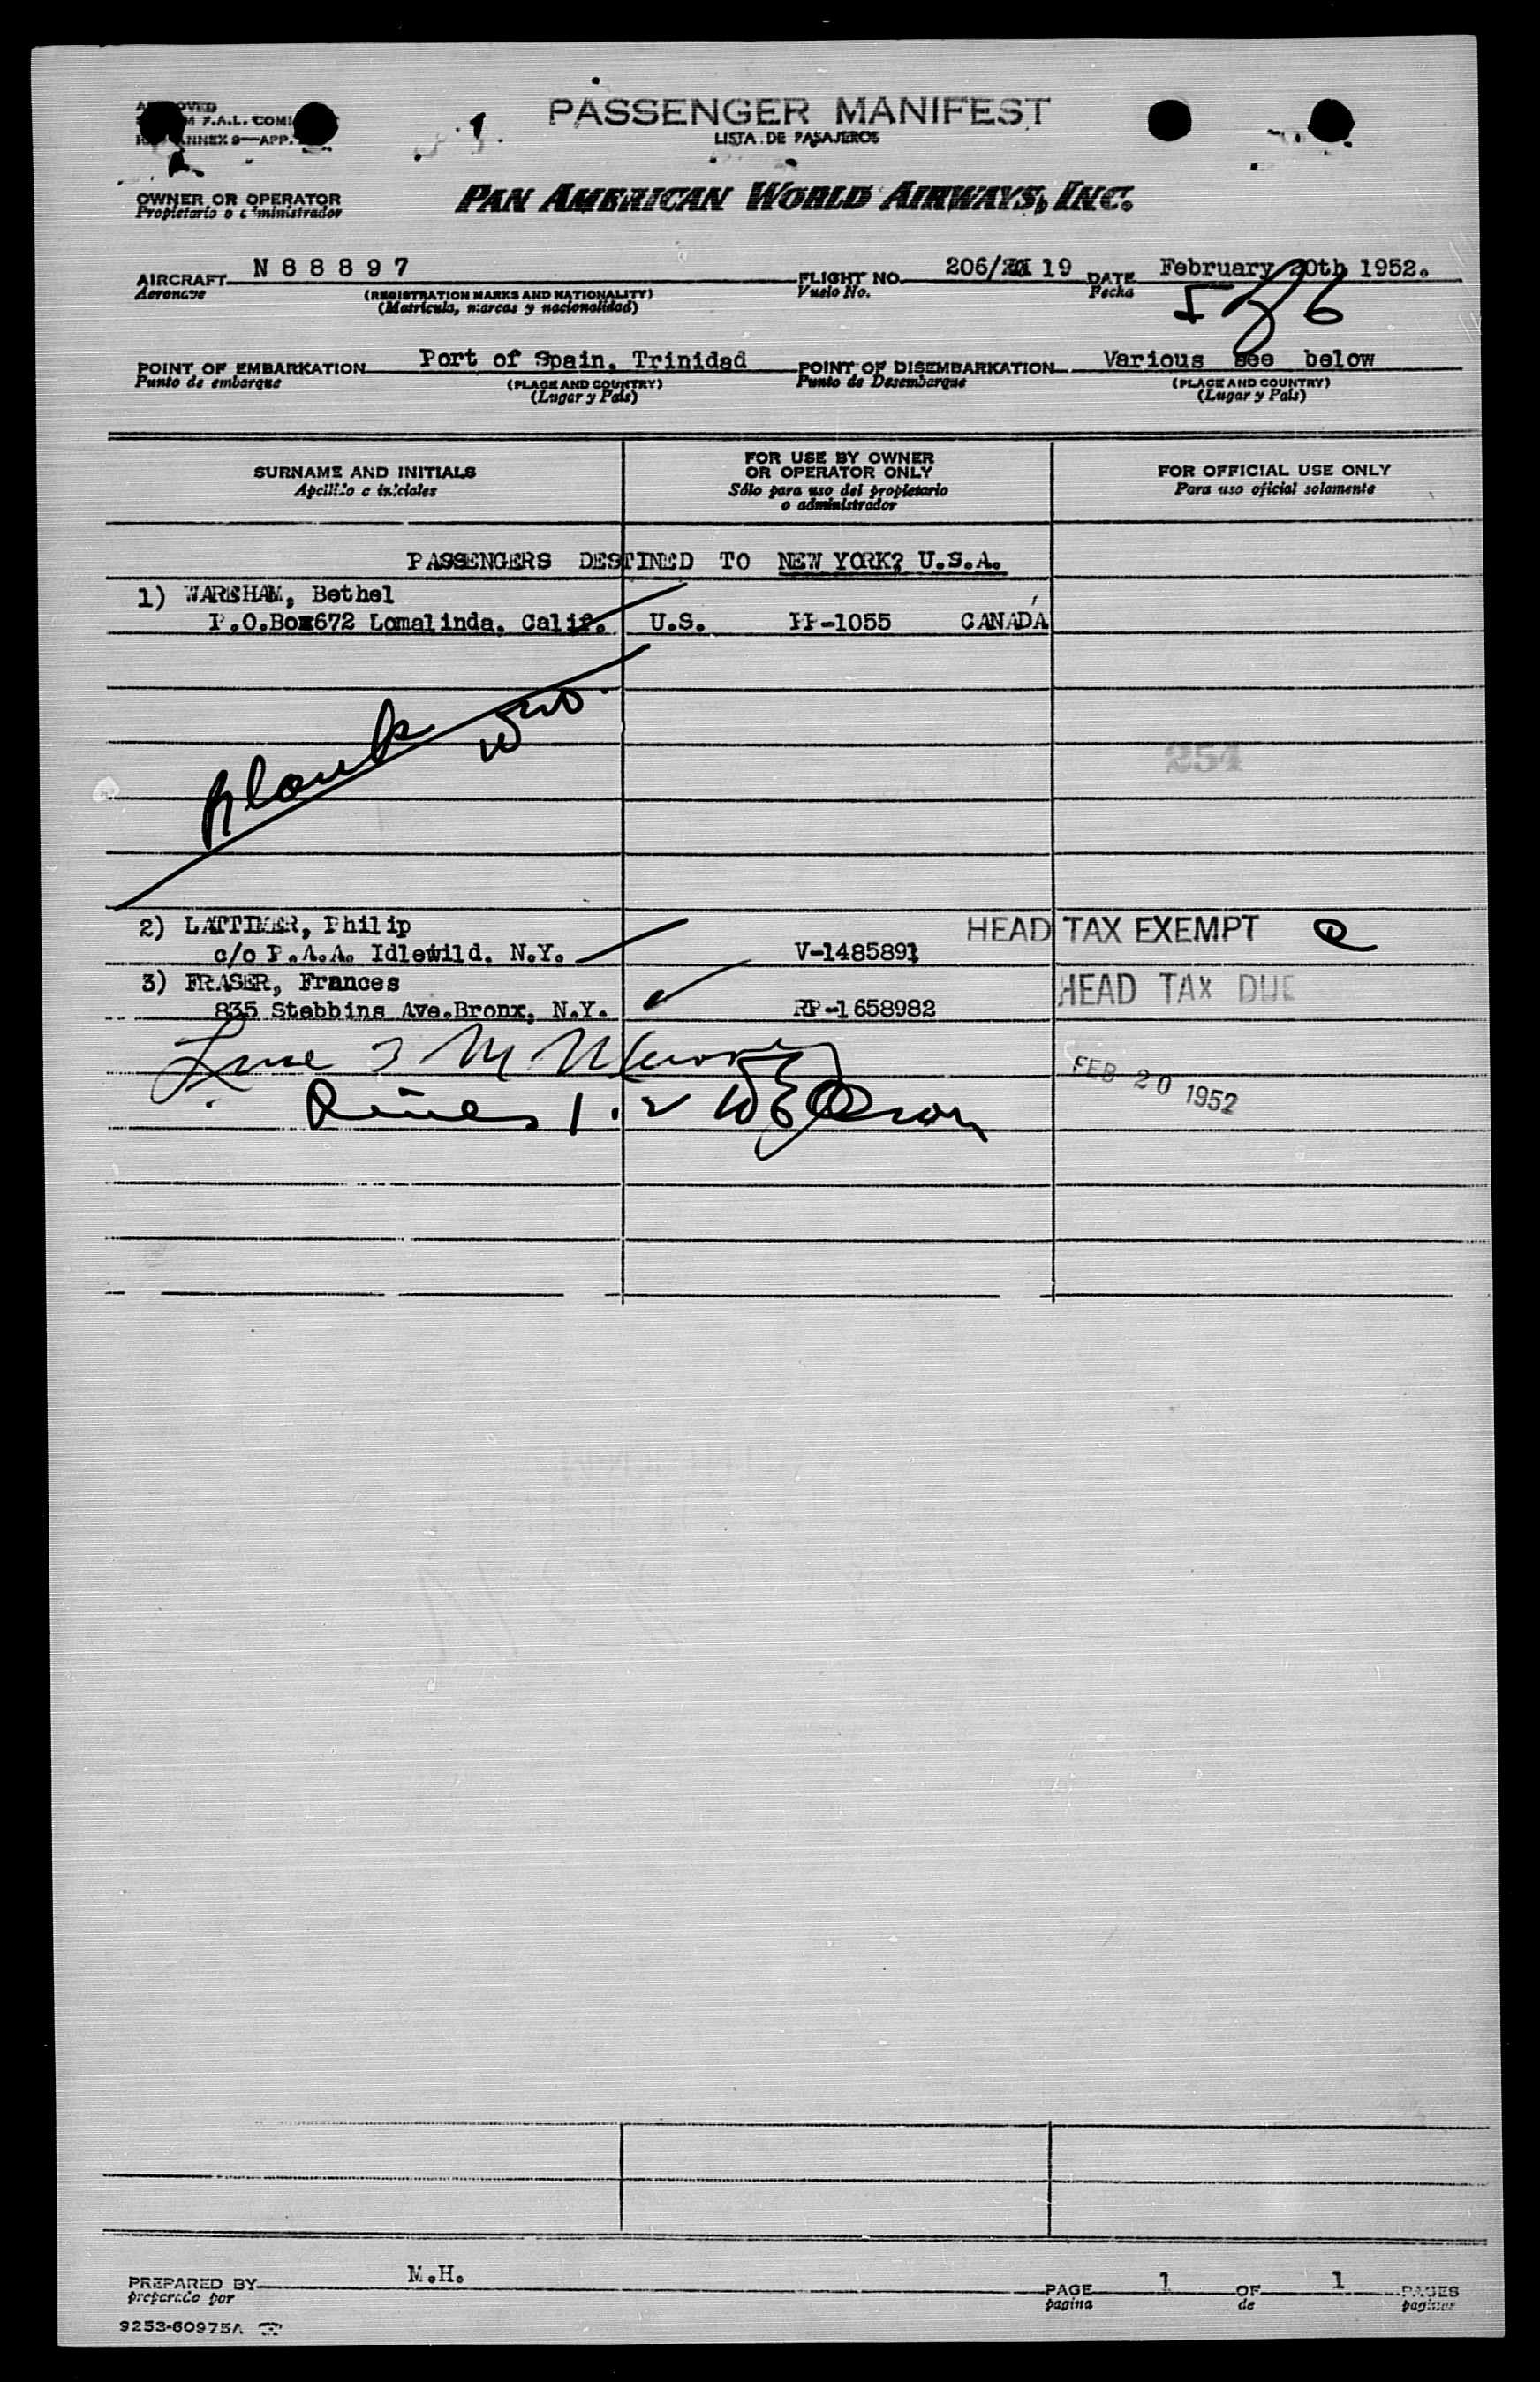 PASSENGER MANIFEST
LISTA DE PASAJEROS
F.A.L. COM
ANNEX 9—APP.
OWNER OR OPERATOR
Propietario o
PAN AMERICAN WORLD AIRWAYS, INC.
AIRCRAFT N 8 8 8 9 7 FLIGHT NO. 206/ 19 DATE February 20th 1952.
Aeronave (REGISTRATION MARKS AND NATIONALITY) Vuelo No. Fecha
(Matrícula, marcas y nacionalidad)
5 of 6
POINT OF EMBARKATION Port of Spain, Trinidad POINT OF DISEMBARKATION Various see below
Punto de embarque (PLACE AND COUNTRY) Punto de Desembarque (PLACE AND COUNTRY)
(Lugar y País) (Lugar y País)
SURNAME AND INITIALS FOR USE BY OWNER OR OPERATOR ONLY FOR OFFICIAL USE ONLY
Apellido e iniciales Sólo para uso del propietario o administrador Para uso oficial solamente
PASSENGERS DESTINED TO NEW YORK? U.S.A.
1) WARSHAM, Bethel
P.O.Box672 Lomalinda, Calif. U.S. PP-1055 CANADA
Blank
254
2) LATTIMER, Philip HEAD TAX EXEMPT
c/o P.A.A. Idlewild, N.Y. V-1485891
3) FRASER, Frances HEAD TAX DUE
835 Stebbins Ave.Bronx, N.Y. RP-1658982
Line 3
FEB 20 1952
Lines 1.2
PREPARED BY M.H. PAGE 1 OF 1 PAGES
preparado por pagina de paginas
9253-60975A